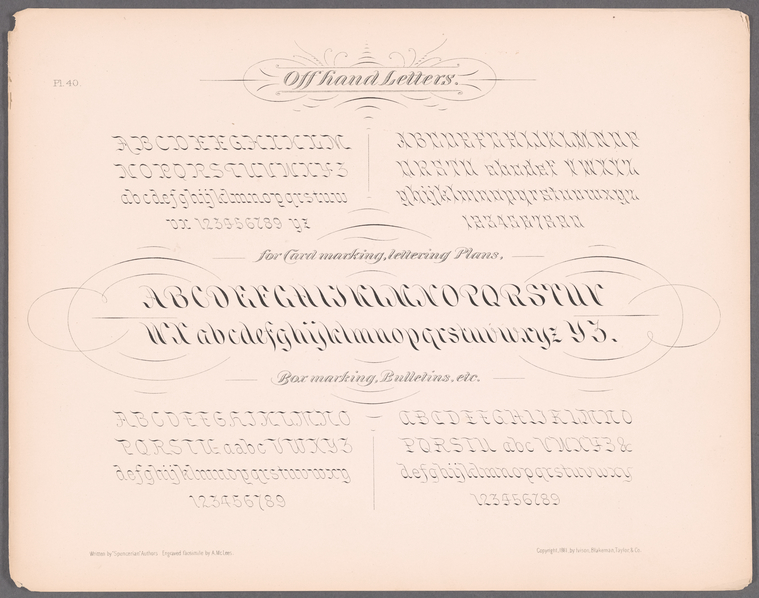 Pl. 40.
Off hand Letters.
A B C D E F G H I J K L M
N O P Q R S T U V W X Y Z
abcdefghijklmnopqrstuw
vx 123456789 yz
A B C D E F G H I J K L M N O P
Q R S T U abcdef V W X Y Z
ghijklmnopqrstuvwxyz
for Card marking, lettering Plans,
A B C D E F G H I J K L M N O P Q R S T U V
W X abcdefghijklmnopqrstuvwxyz Y Z.
Box marking, Bulletins, etc.
A B C D E F G H I J K L M N O
P Q R S T U aabc V W X Y Z
defghijklmnopqrstuvwxy
123456789
A B C D E F G H I J K L M N O
P Q R S T U abc V W X Y Z &
defghijklmnopqrstuvwxy
123456789
Written by "Spencerian" Authors. Engraved Facsimile by A. McLees.
Copyright, 1881, by Ivison, Blakeman, Taylor & Co.